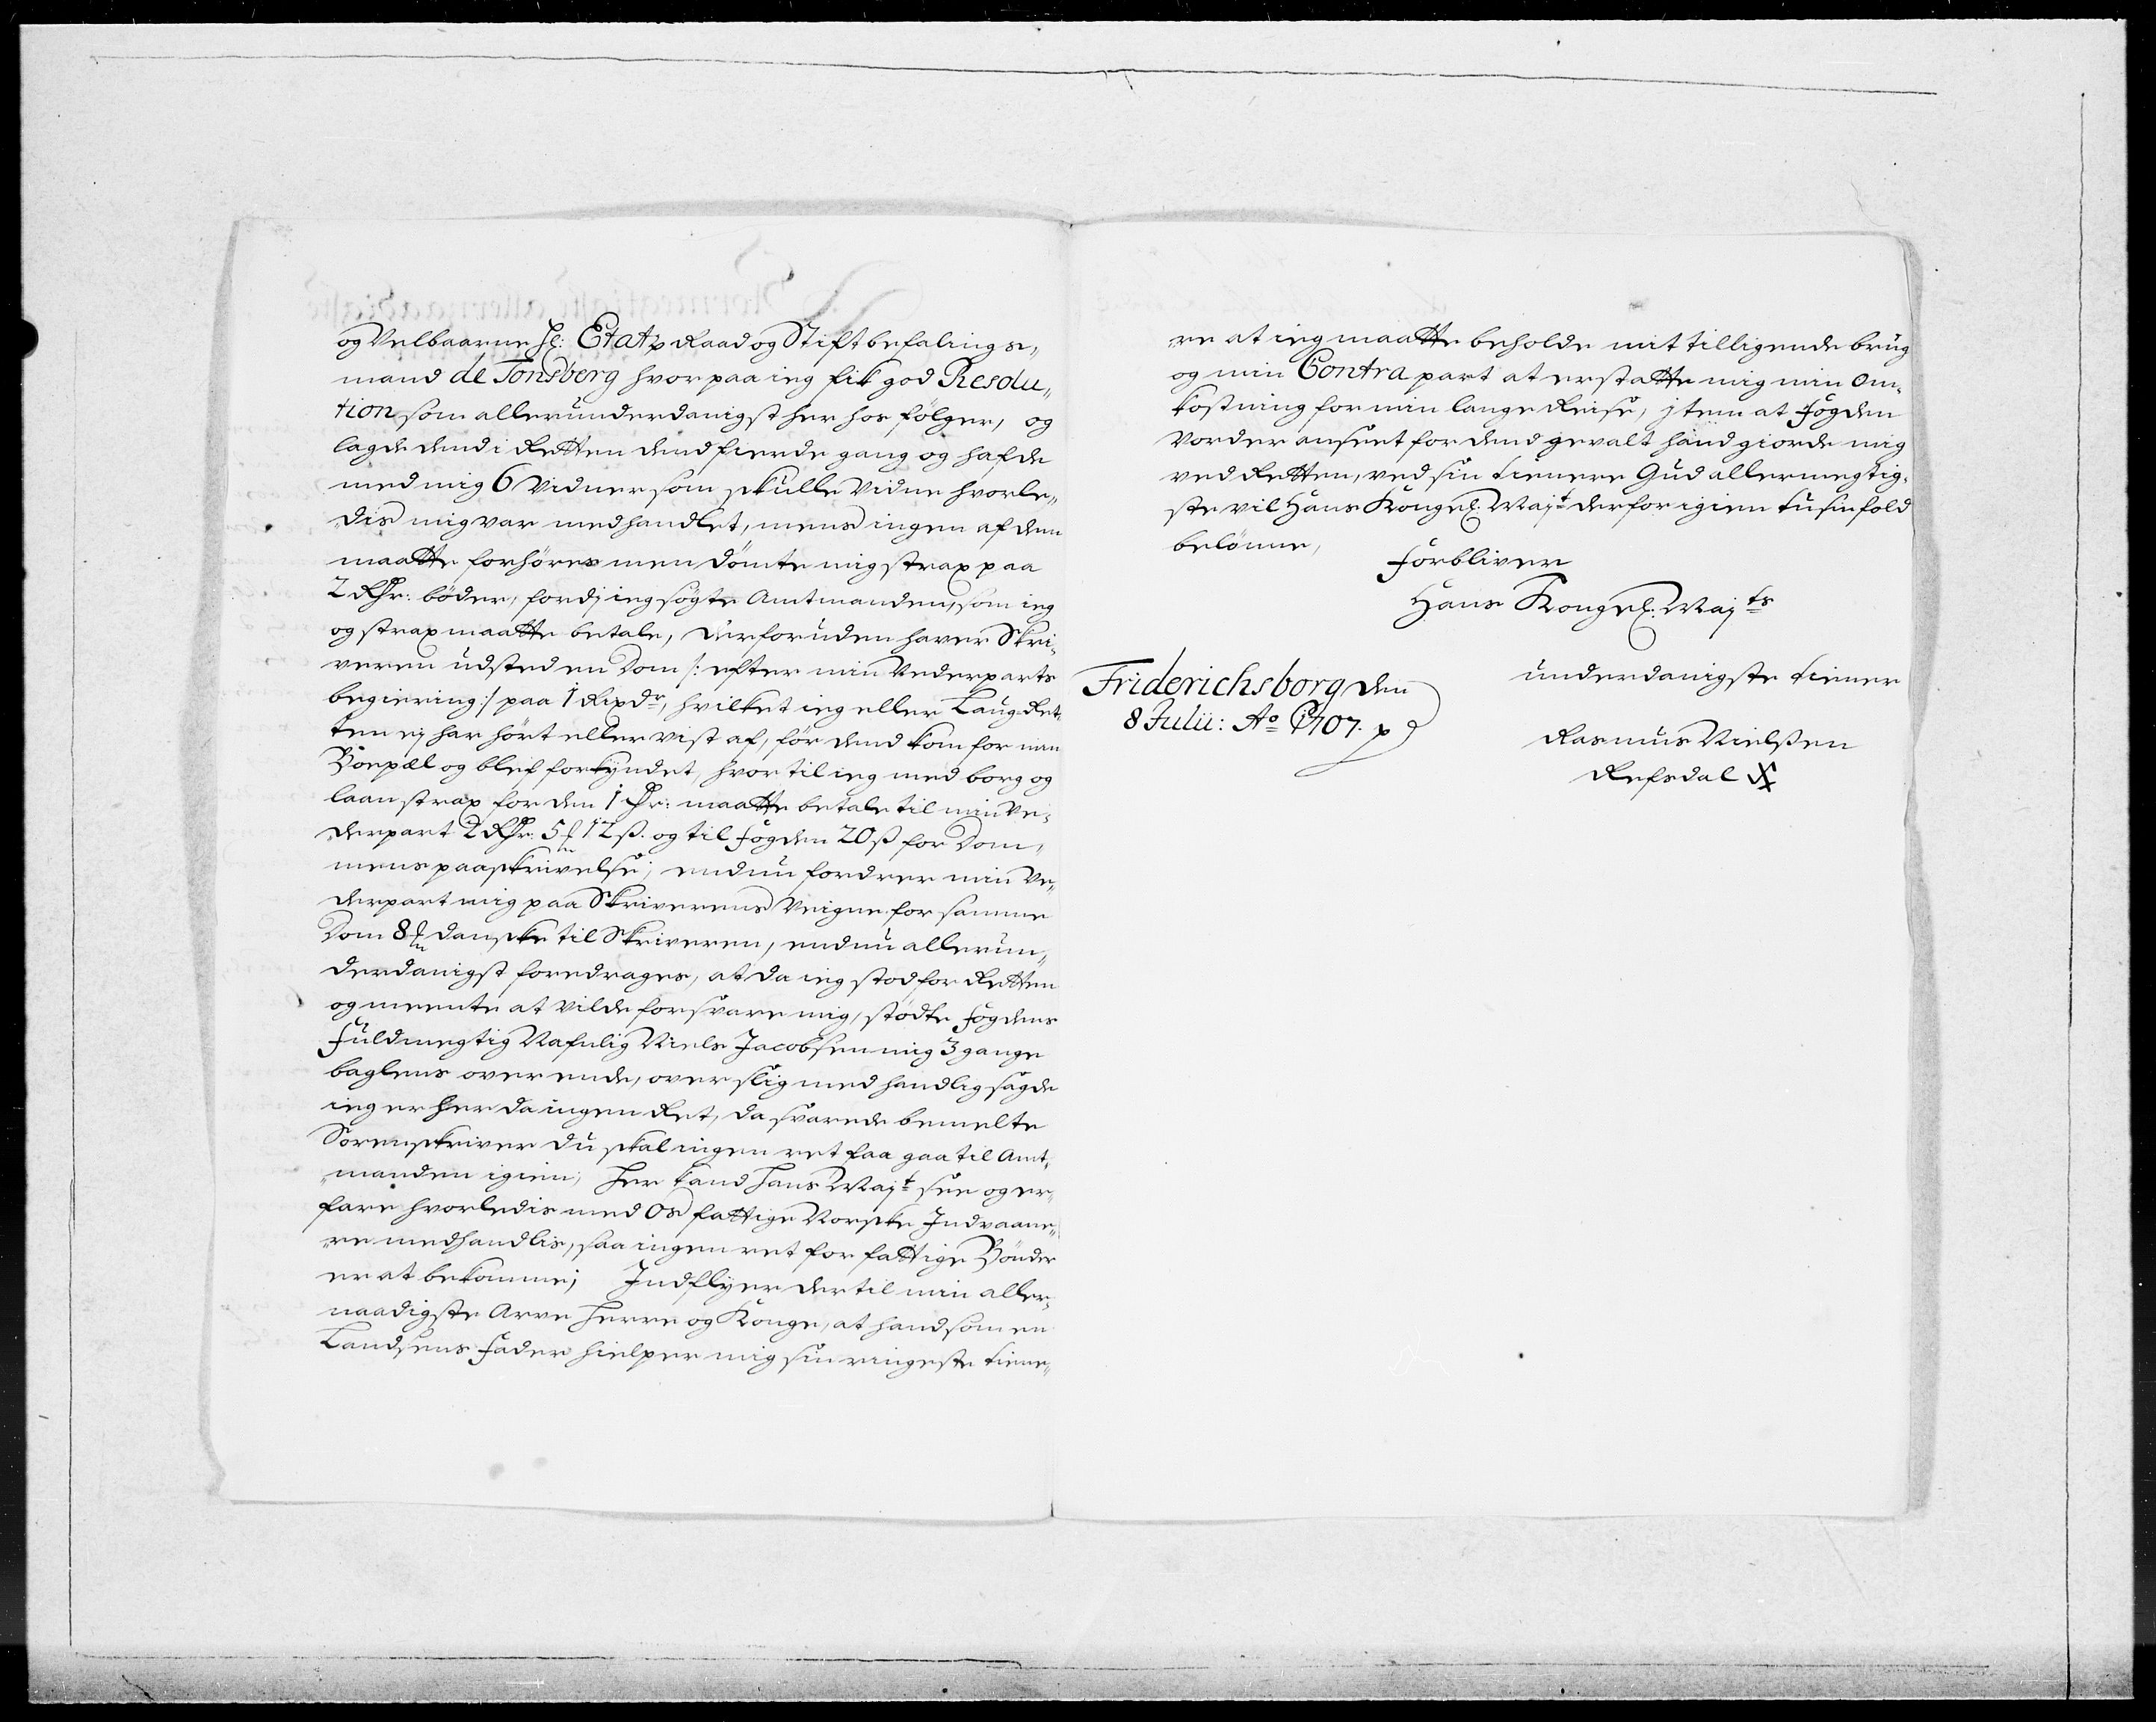 og Velbaarne H: Etatz Raad og Stiftbefalings-
mand de Tonsberg hvorpaa ieg fik god Resolu-
tion som allerunderdanigst her hos følger, og
lagde dend i Retten dend fierde gang og hafde
med mig 6 Vidner som skulle Vidne hvorle-
dis mig var medhandlet, mens ingen af dem
maatte forhøres men dømte mig strax paa
2 Rdr: bøder, fordj ieg søgte Amtmanden, som ieg
og strax maatte betale, derforuden haver Skri-
veren udsted en Dom /: efter min Vederparts
begiering :/ paa 1 Rixdr, hvilket ieg eller Laug Ret-
ten ej har hørt eller vist af, før dend kom for min
Boepæl og blef forkyndet, hvortil ieg med borg og
laan strax for den 1 Dr: maatte betale til min Ve-
derpart 2 Rdr: 5 12 ß. og til Fogden 20 ß for Dom-
mens paaskrivelse; endnu fordrer min Ve-
derpart mig paa Skriverens Veigne for samme
Dom 8 danske til Skriveren, endnu allerun-
derdanigst foredrages, at da ieg stod for Retten
og meente at vilde forsvare mig, stødte Fogdens
fuldmegtig Nafnlig Niels Jacobsen mig 3 gange
baglens over ende, over slig medhandlig sagde
ieg er her da ingen Ret, da svarede bemelte
Sorenskriver du skal ingen ret faa gaa til Amt-
manden igien; her kand hans Majt see og er-
fare hvorledis med Os fattige Norske Indvaane-
re medhandlis, saa ingen ret for fattige Bønder
er at bekomme; Indflyer dertil min aller-
naadigste Arve Herre og Konge, at hand som en
Landsens Fader hielper mig sin ringeste tiene-
re at ieg maatte beholde mit tilligende brug
og min Contra part at erstatte mig min Om-
kostning for min lange Reise, jtem at Fogden
Vorder anseet for dend gevalt hand giorde mig
ved Retten, ved sin tienere Gud allermegtig-
ste vil Hans Kongel: Majt derfor igien tusinfold
belønne,
forbliver
Hans Kongel: Majts
underdanigste tiener
Friderichsborg den
8 Julii: Ao 1707.
Rasmus Nielßen
Refsdal